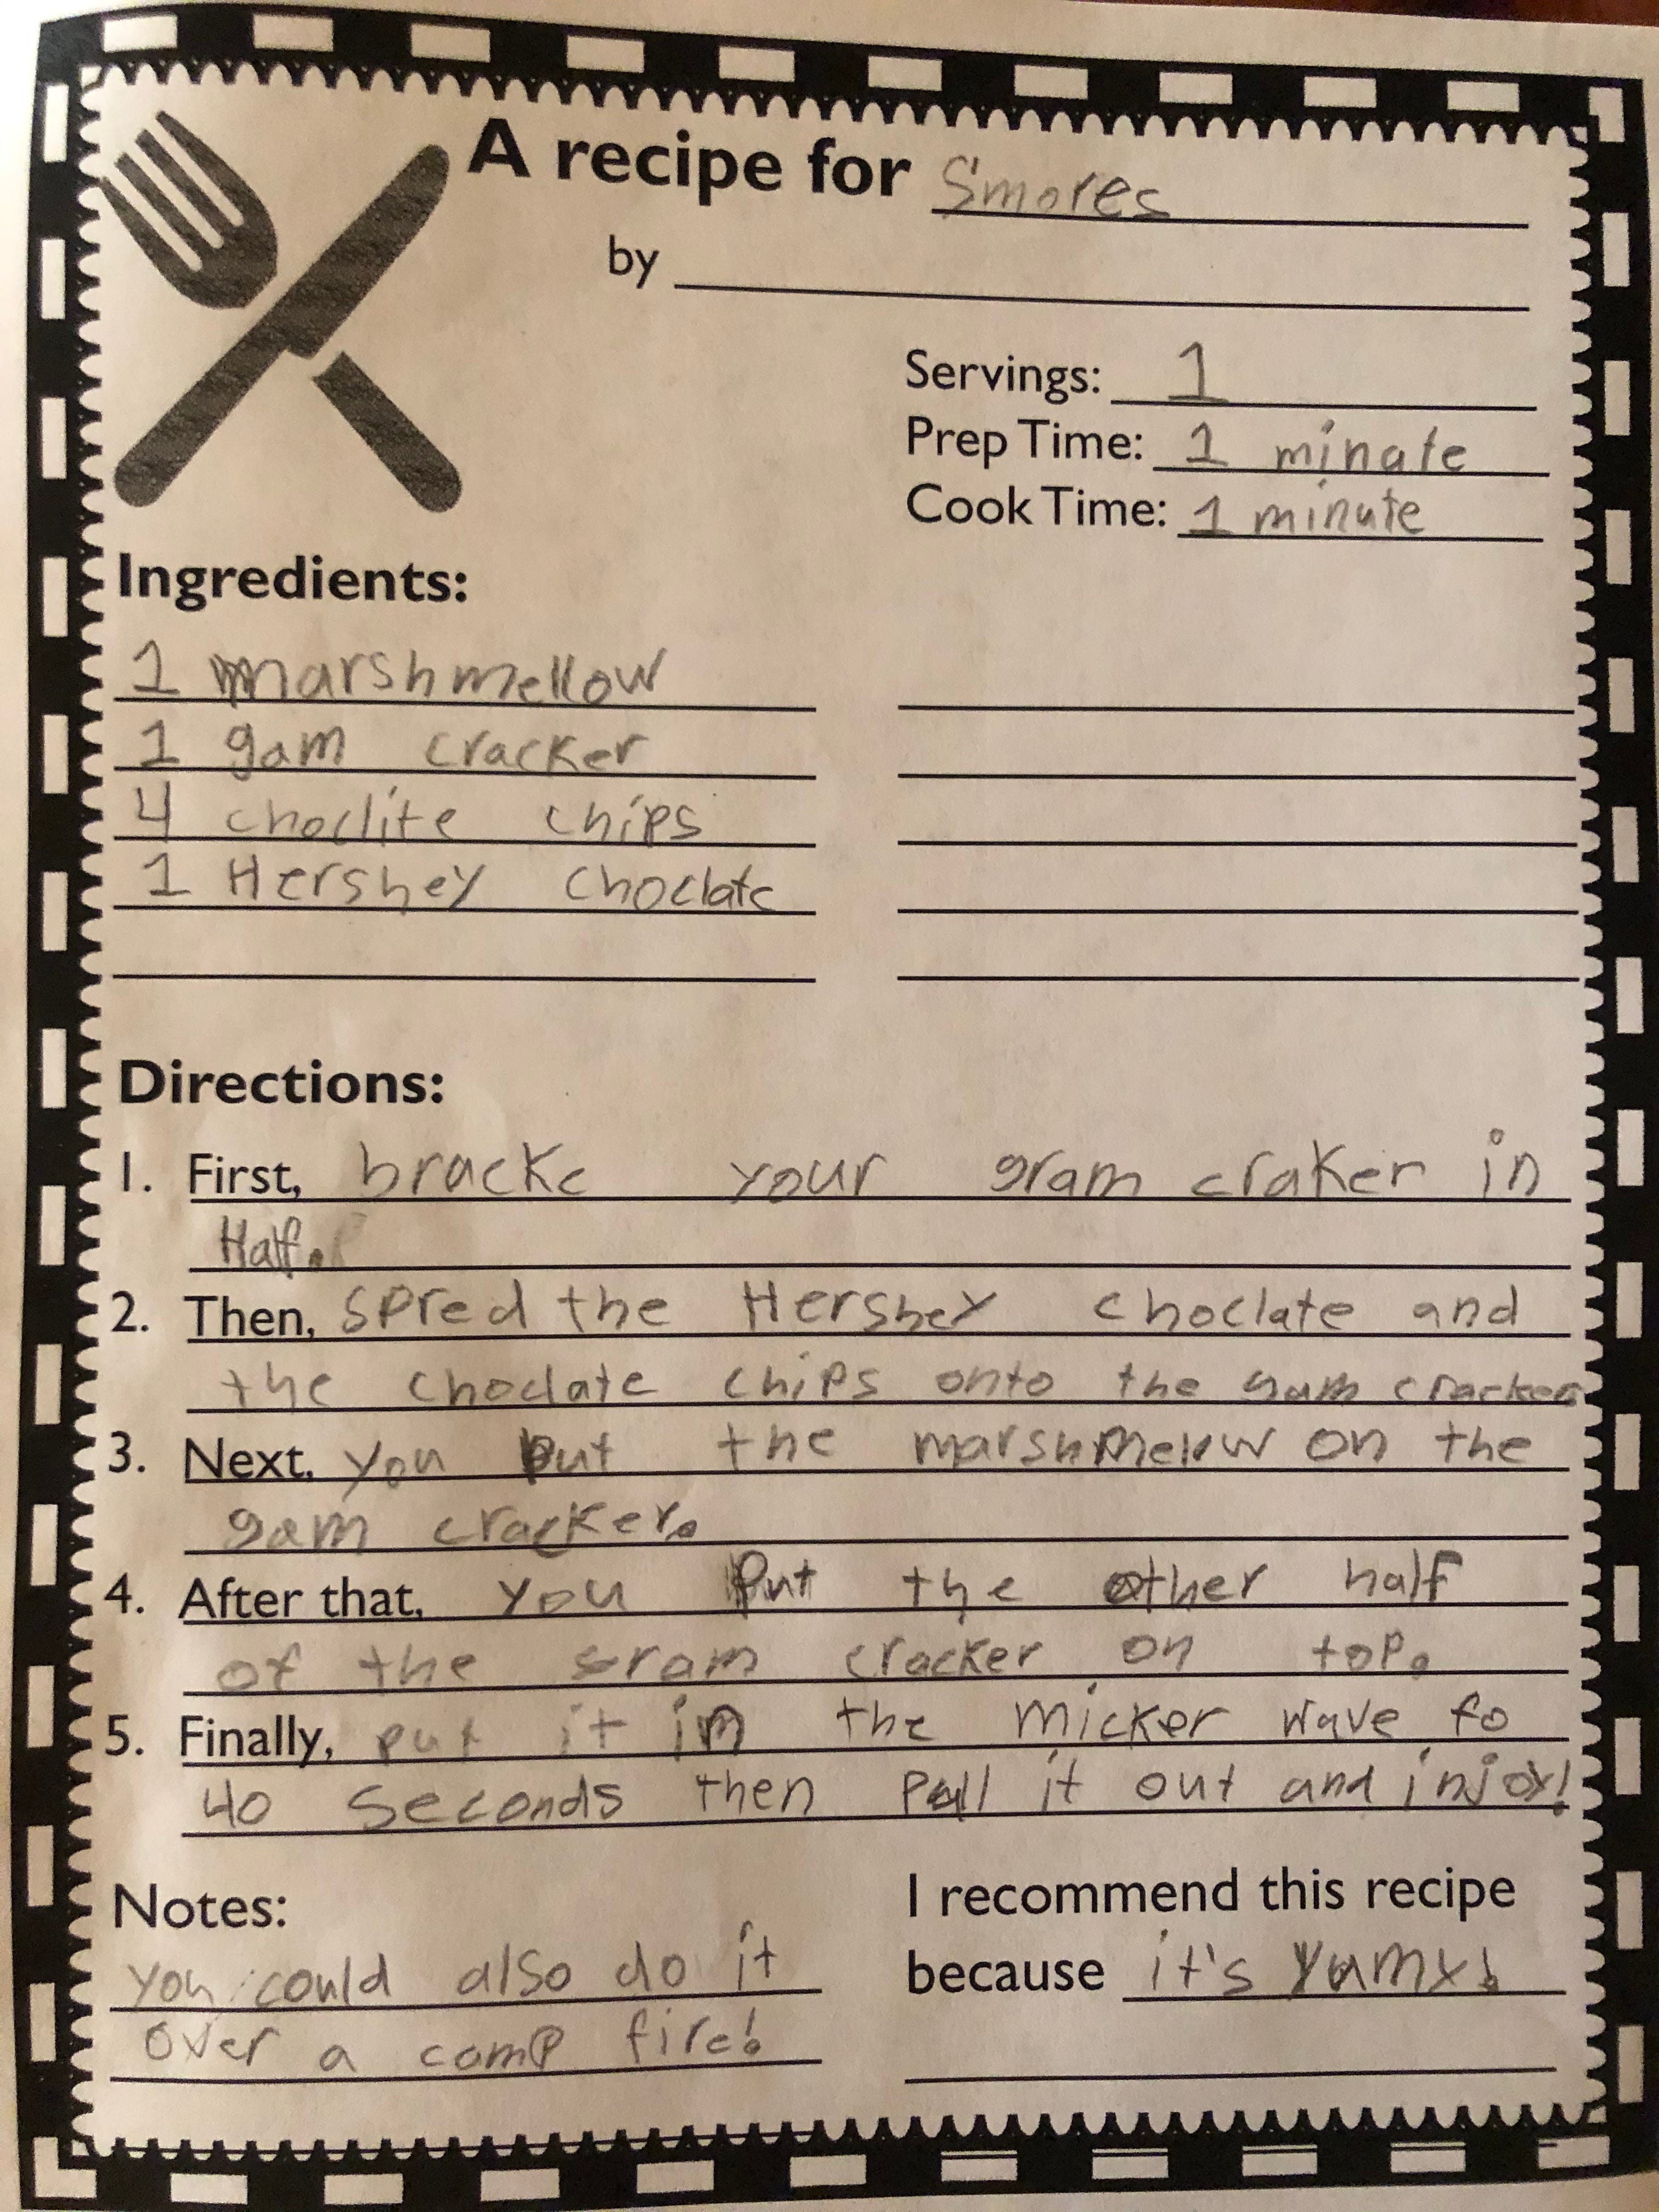 A recipe for Smores
by
Servings: 1
Prep Time: 1 minate
Cook Time: 1 minute
Ingredients:
1 marshmellow
1 gam cracker
4 choclite chips
1 Hershey choclate
Directions:
1. First, bracke your gram craker in
Half.
2. Then, spred the Hershey choclate and
the choclate chips onto the gam cracker
3. Next, you put the marshmelow on the
gam cracker.
4. After that, you put the other half
of the gram cracker on top.
5. Finally, put it in the micker wave fo
40 seconds then pull it out and injoy!
Notes:
you could also do it
over a camp fire!
I recommend this recipe
because it's yumy!